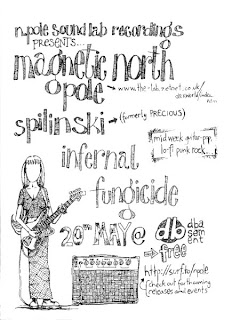 n.pole sound lab recordings
PRESENTS...
magnetic north
pole
www.the-lab.zetnet.co.uk/
spilinski
(formerly PRECIOUS)
midweek guitar-pop
lo-fi punk rock
infernal
fungicide
20TH MAY @ db dba
sem
ent
free
http://surf.to/npole
check out forthcoming
releases and events